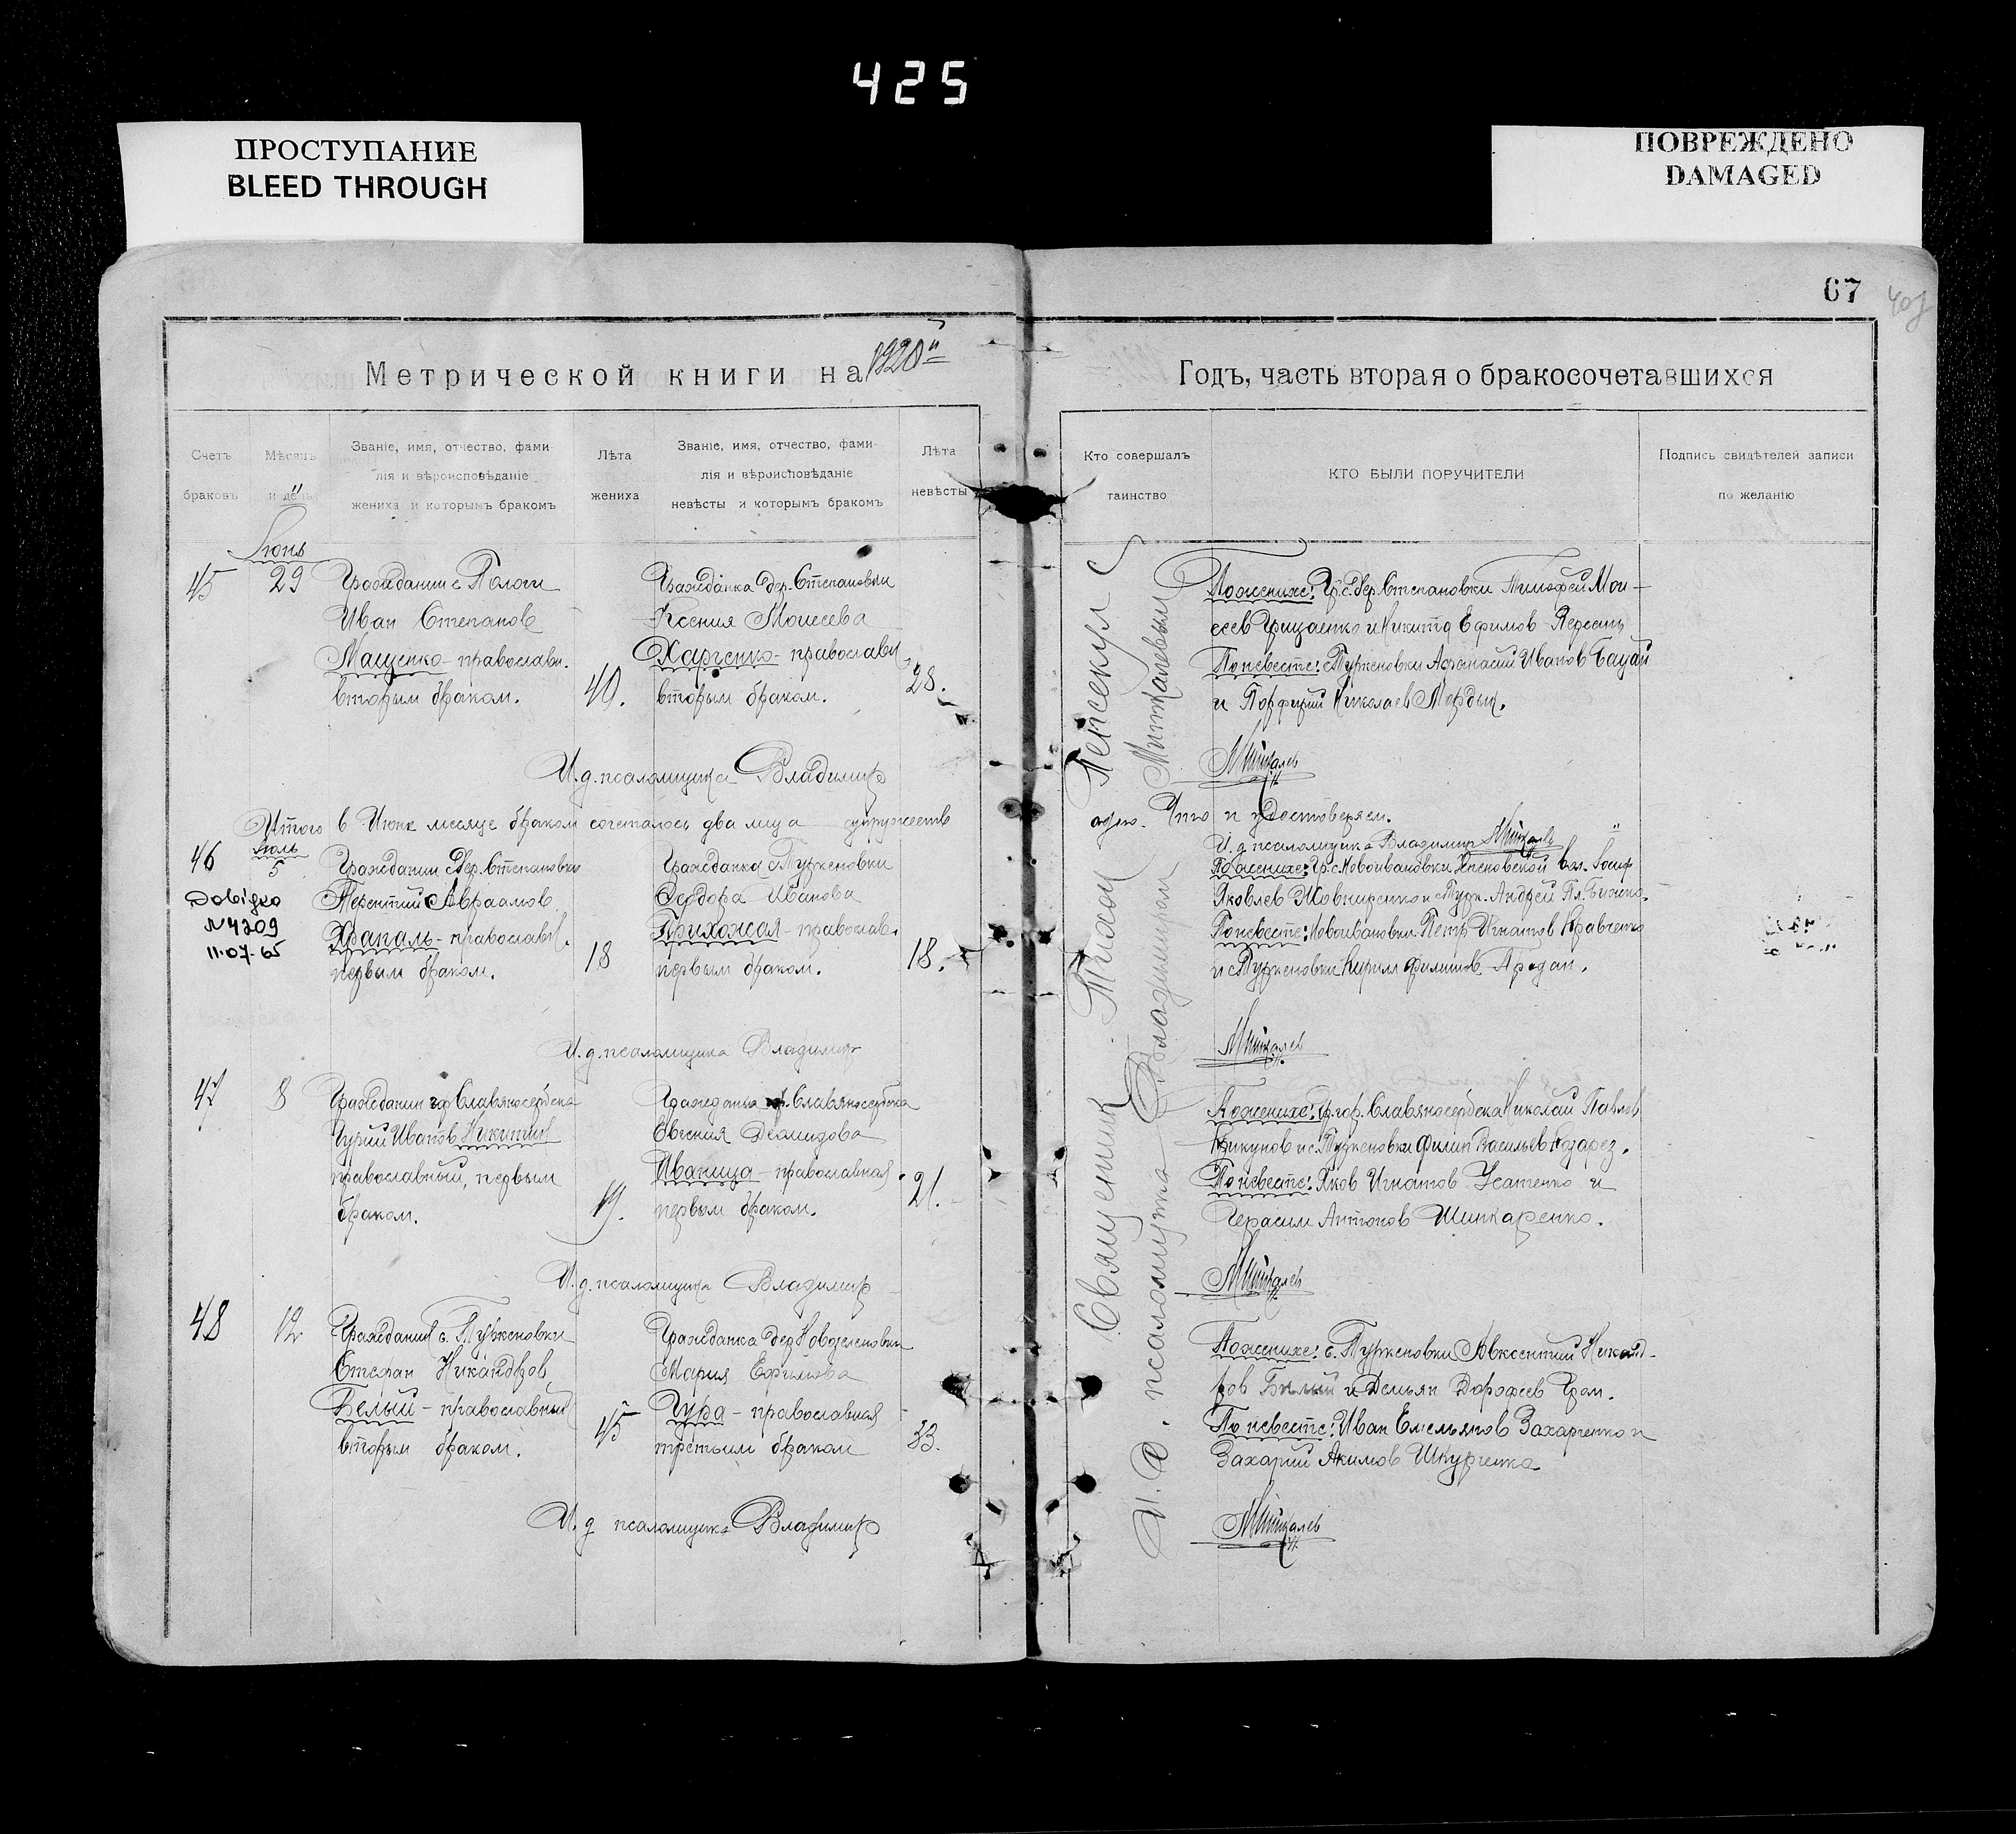 425
ПРОСТУПАНИЕ
BLEED THROUGH
ПОВРЕЖДЕНО
DAMAGED
67
Метрической книги на 1920
Годъ, часть вторая о бракосочетавшихся
Счетъ браковъ
Мѣсяцъ и день
Званіе, имя, отчество, фами-
лія и вѣроисповѣданіе
жениха и которымъ бракомъ
Лѣта жениха
Званіе, имя, отчество, фами-
лія и вѣроисповѣданіе
невѣсты и которымъ бракомъ
Лѣта невѣсты
Кто совершалъ таинство
КТО БЫЛИ ПОРУЧИТЕЛИ
Подпись свидѣтелей записи
по желанію
Июнь
45
29
Гражданин с. Пологи
Иван Степанов
Мащенко - православн.
вторым браком.
40.
Гражданка дер. Степановки
Ксения Моисеева
Харченко - православн.
вторым браком.
28.
По женихе: Гр. с. дер. Степановки Тимофей Мои-
сеев Грицаенко и Никита Ефимов
По невесте: с. Туркеновки Афанасий Иванов
и Порфирий Николаев
И. д. псаломщика Владимир Миткалев
Итого в Июне месяце браком сочеталось два лица супружеств
одно. Что и удостоверяем.
И. д. псаломщика Владимир Миткалев
46
Июль
5
Довідка
N4209
11.07.65
Гражданин дер. Степановки
Терентий Авраамов
Храпаль - православн.
первым браком.
18
Гражданка с. Туркеновки
Феодора Иванова
Прихожая - православ.
первым браком.
18.
По женихе: Гр. с. Новоивановки вол. Иосиф
Яковлев Жовниренко и с. Турк. Андрей
По невесте: Новоивановки Петр Игнатов Кравченко
и с. Туркеновки Кирилл Филипов
И. д. псаломщика Владимир Миткалев
47
8
Гражданин гор. Славяносербска
Гурий Иванов Никитин
православный, первым
браком.
19.
Гражданка гор. Славяносербска
Евгения Демидова
Иваница - православная
первым браком.
21.
По женихе: Гр. гор. Славяносербска Николай Павлов
Крикунов и с. Туркеновки Филип Васильев Козарез.
По невесте: Яков Игнатов Усатенко и
Герасим Антонов Шинкаренко.
И. д. псаломщика Владимир Миткалев
48
12
Гражданин с. Туркеновки
Стефан Никандров
Белый - православный
вторым браком.
45
Гражданка дер. Новоселовки
Мария Ефимова
Гура - православная
третьим браком
33.
По женихе: с. Туркеновки Авксентий Никанд-
ров Белый и Демьян Дорофеев
По невесте: Иван Емельянов Захарченко и
Захарий Акимов Шкурченко
И. д. псаломщика Владимир Миткалев
Священник Тихон
И. д. псаломщика Владимир Миткалевым